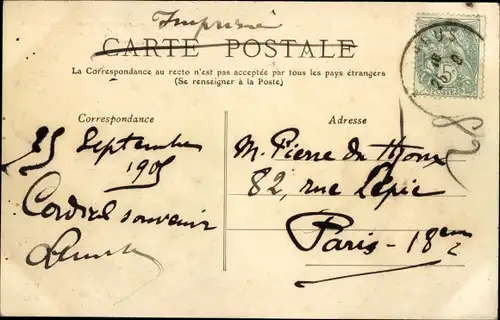 Imprimé
CARTE POSTALE
La Correspondance au recto n'est pas acceptée par tous les pays étrangers
(Se renseigner à la Poste)
Correspondance
Adresse
25 Septembre
1905
Cordial souvenir
M. Pierre du
82, rue Lepic
Paris - 18eme
82
5c
POSTES